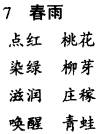 7 春雨
点红 桃花
染绿 柳芽
滋润 庄稼
唤醒 青蛙